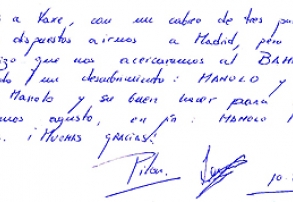 s a Kaxe, con un cabreo de tres pu
dispuestos a irnos a Madrid, pero
izo que nos acercaramos al BAHÍ
un descubrimiento: MANOLO y
Manolo y su buen hacer para
mos agusto, en fin: MANOLO
¡MUCHAS GRACIAS!
Pilar.
10-